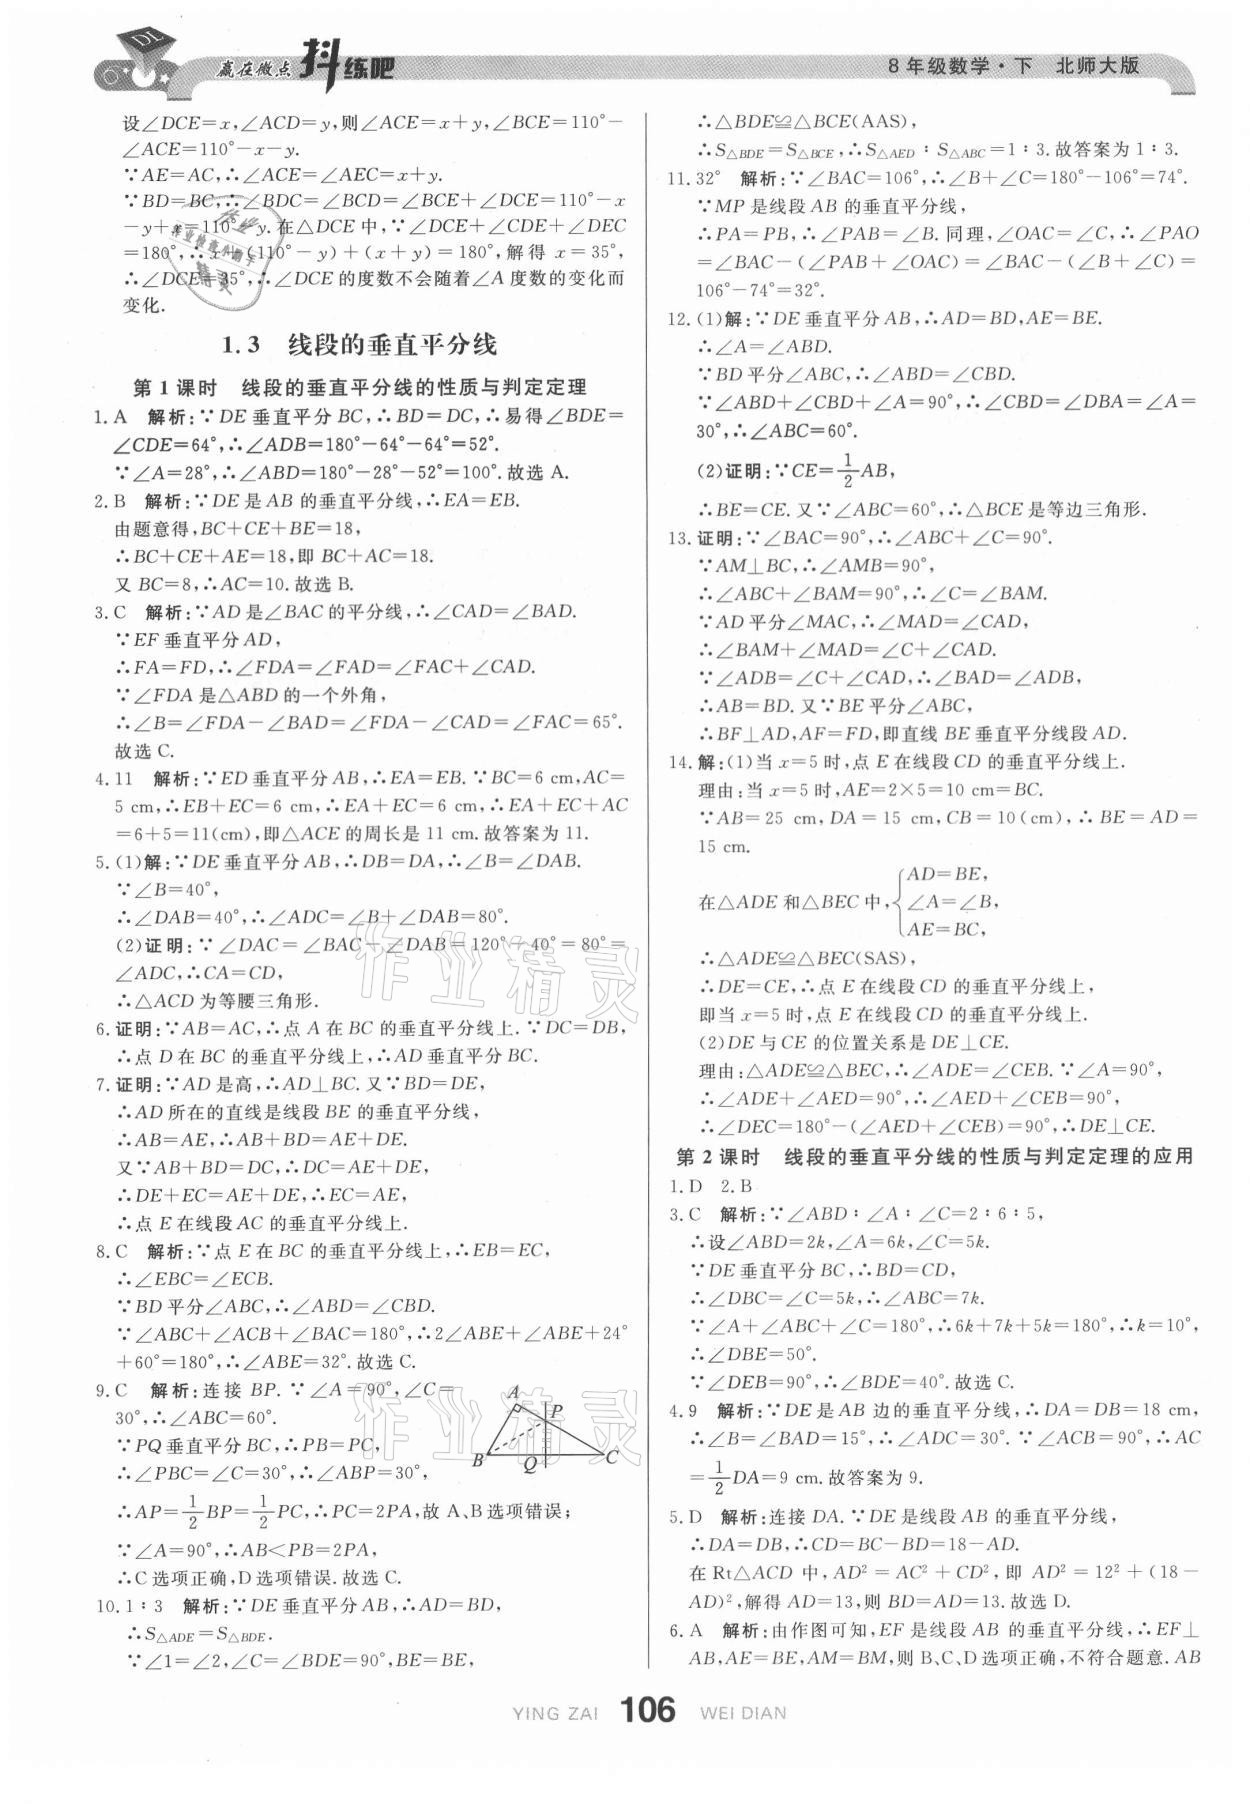 DL
赢在微点 抖练吧
8年级数学·下 北师大版
设∠DCE=x,∠ACD=y,则∠ACE=x+y,∠BCE=110°-
∠ACE=110°-x-y.
∵AE=AC,∴∠ACE=∠AEC=x+y.
∵BD=BC,∴∠BDC=∠BCD=∠BCE+∠DCE=110°-x
-y+x=110°-y.在△DCE中,∵∠DCE+∠CDE+∠DEC
=180°,∴x+(110°-y)+(x+y)=180°,解得 x=35°,
∴∠DCE=35°,∴∠DCE的度数不会随着∠A度数的变化而
变化.
1.3 线段的垂直平分线
第1课时 线段的垂直平分线的性质与判定定理
1.A 解析:∵DE垂直平分BC,∴BD=DC,∴易得∠BDE=
∠CDE=64°,∴∠ADB=180°-64°-64°=52°.
∵∠A=28°,∴∠ABD=180°-28°-52°=100°.故选A.
2.B 解析:∵DE是AB的垂直平分线,∴EA=EB.
由题意得,BC+CE+BE=18,
∴BC+CE+AE=18,即BC+AC=18.
又BC=8,∴AC=10.故选B.
3.C 解析:∵AD是∠BAC的平分线,∴∠CAD=∠BAD.
∵EF垂直平分AD,
∴FA=FD,∴∠FDA=∠FAD=∠FAC+∠CAD.
∵∠FDA是△ABD的一个外角,
∴∠B=∠FDA-∠BAD=∠FDA-∠CAD=∠FAC=65°.
故选C.
4.11 解析:∵ED垂直平分AB,∴EA=EB.∵BC=6 cm,AC=
5 cm,∴EB+EC=6 cm,∴EA+EC=6 cm,∴EA+EC+AC
=6+5=11(cm),即△ACE的周长是11 cm.故答案为11.
5.(1)解:∵DE垂直平分AB,∴DB=DA,∴∠B=∠DAB.
∵∠B=40°,
∴∠DAB=40°,∴∠ADC=∠B+∠DAB=80°.
(2)证明:∵∠DAC=∠BAC-∠DAB=120°-40°=80°=
∠ADC,∴CA=CD,
∴△ACD为等腰三角形.
6.证明:∵AB=AC,∴点A在BC的垂直平分线上.∵DC=DB,
∴点D在BC的垂直平分线上,∴AD垂直平分BC.
7.证明:∵AD是高,∴AD⊥BC.又∵BD=DE,
∴AD所在的直线是线段BE的垂直平分线,
∴AB=AE,∴AB+BD=AE+DE.
又∵AB+BD=DC,∴DC=AE+DE,
∴DE+EC=AE+DE,∴EC=AE,
∴点E在线段AC的垂直平分线上.
8.C 解析:∵点E在BC的垂直平分线上,∴EB=EC,
∴∠EBC=∠ECB.
∵BD平分∠ABC,∴∠ABD=∠CBD.
∵∠ABC+∠ACB+∠BAC=180°,∴2∠ABE+∠ABE+24°
+60°=180°,∴∠ABE=32°.故选C.
9.C 解析:连接BP.∵∠A=90°,∠C=
30°,∴∠ABC=60°.
∵PQ垂直平分BC,∴PB=PC,
∴∠PBC=∠C=30°,∴∠ABP=30°,
A
P
B
Q
C
∴AP=1/2BP=1/2PC,∴PC=2PA,故A、B选项错误;
∵∠A=90°,∴AB<PB=2PA,
∴C选项正确,D选项错误.故选C.
10.1∶3 解析:∵DE垂直平分AB,∴AD=BD,
∴S△ADE=S△BDE.
∵∠1=∠2,∠C=∠BDE=90°,BE=BE,
∴△BDE≌△BCE(AAS),
∴S△BDE=S△BCE,∴S△AED∶S△ABC=1∶3.故答案为1∶3.
11.32° 解析:∵∠BAC=106°,∴∠B+∠C=180°-106°=74°.
∵MP是线段AB的垂直平分线,
∴PA=PB,∴∠PAB=∠B.同理,∠OAC=∠C,∴∠PAO
=∠BAC-(∠PAB+∠OAC)=∠BAC-(∠B+∠C)=
106°-74°=32°.
12.(1)解:∵DE垂直平分AB,∴AD=BD,AE=BE.
∴∠A=∠ABD.
∵BD平分∠ABC,∴∠ABD=∠CBD.
∵∠ABD+∠CBD+∠A=90°,∴∠CBD=∠DBA=∠A=
30°,∴∠ABC=60°.
(2)证明:∵CE=1/2AB,
∴BE=CE.又∵∠ABC=60°,∴△BCE是等边三角形.
13.证明:∵∠BAC=90°,∴∠ABC+∠C=90°.
∵AM⊥BC,∴∠AMB=90°,
∴∠ABC+∠BAM=90°,∴∠C=∠BAM.
∵AD平分∠MAC,∴∠MAD=∠CAD,
∴∠BAM+∠MAD=∠C+∠CAD.
∵∠ADB=∠C+∠CAD,∴∠BAD=∠ADB,
∴AB=BD.又∵BE平分∠ABC,
∴BF⊥AD,AF=FD,即直线BE垂直平分线段AD.
14.解:(1)当x=5时,点E在线段CD的垂直平分线上.
理由:当x=5时,AE=2×5=10 cm=BC.
∵AB=25 cm,DA=15 cm,CB=10(cm),∴BE=AD=
15 cm.
在△ADE和△BEC中,{AD=BE,
∠A=∠B,
AE=BC,
∴△ADE≌△BEC(SAS),
∴DE=CE,∴点E在线段CD的垂直平分线上,
即当x=5时,点E在线段CD的垂直平分线上.
(2)DE与CE的位置关系是DE⊥CE.
理由:△ADE≌△BEC,∴∠ADE=∠CEB.∵∠A=90°,
∴∠ADE+∠AED=90°,∴∠AED+∠CEB=90°,
∴∠DEC=180°-(∠AED+∠CEB)=90°,∴DE⊥CE.
第2课时 线段的垂直平分线的性质与判定定理的应用
1.D 2.B
3.C 解析:∵∠ABD∶∠A∶∠C=2∶6∶5,
∴设∠ABD=2k,∠A=6k,∠C=5k.
∵DE垂直平分BC,∴BD=CD,
∴∠DBC=∠C=5k,∴∠ABC=7k.
∵∠A+∠ABC+∠C=180°,∴6k+7k+5k=180°,∴k=10°,
∴∠DBE=50°.
∵∠DEB=90°,∴∠BDE=40°.故选C.
4.9 解析:∵DE是AB边的垂直平分线,∴DA=DB=18 cm,
∴∠B=∠BAD=15°,∴∠ADC=30°.∵∠ACB=90°,∴AC
=1/2DA=9 cm.故答案为9.
5.D 解析:连接DA.∵DE是线段AB的垂直平分线,
∴DA=DB,∴CD=BC-BD=18-AD.
在Rt△ACD中,AD²=AC²+CD²,即AD²=12²+(18-
AD)²,解得AD=13,则BD=AD=13.故选D.
6.A 解析:由作图可知,EF是线段AB的垂直平分线,∴EF⊥
AB,AE=BE,AM=BM,则B、C、D选项正确,不符合题意.AB
作业精灵
作业精灵
YING ZAI 106 WEI DIAN